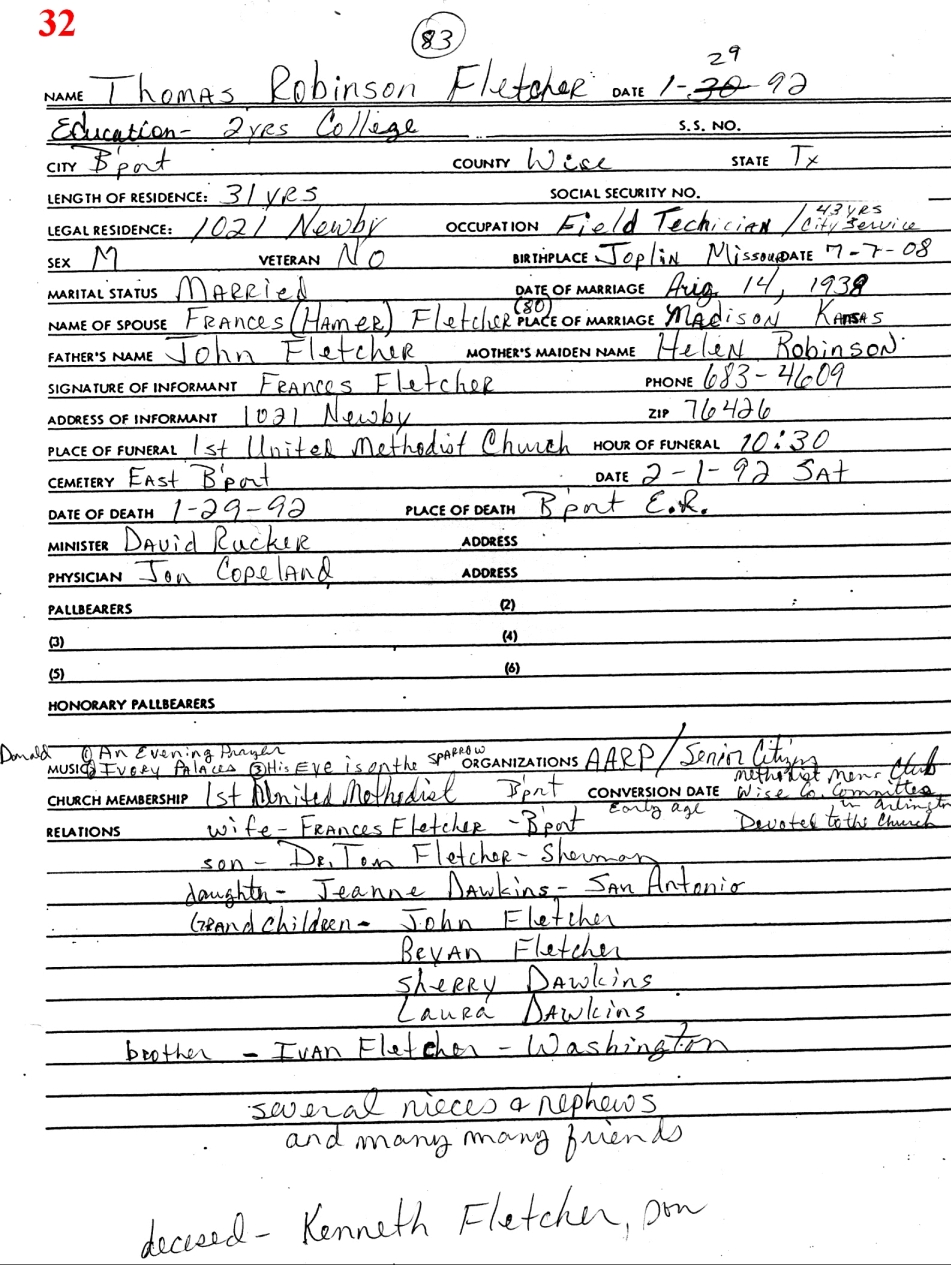 32
83
29
NAME Thomas Robinson Fletcher DATE 1-30-92
Education- 2 yrs College S.S. NO.
CITY B'port COUNTY Wise STATE Tx
LENGTH OF RESIDENCE: 31 yrs SOCIAL SECURITY NO.
43 yrs
LEGAL RESIDENCE: 1021 Newby OCCUPATION Field Techician / City Service
SEX M VETERAN No BIRTHPLACE Joplin Missouri DATE 7-7-08
MARITAL STATUS Married DATE OF MARRIAGE Aug 14, 1938
NAME OF SPOUSE Frances (Hamer) Fletcher (80) PLACE OF MARRIAGE Madison Kansas
FATHER'S NAME John Fletcher MOTHER'S MAIDEN NAME Helen Robinson
SIGNATURE OF INFORMANT Frances Fletcher PHONE 683-4609
ADDRESS OF INFORMANT 1021 Newby ZIP 76426
PLACE OF FUNERAL 1st United Methodist Church HOUR OF FUNERAL 10:30
CEMETERY East B'port DATE 2-1-92 Sat
DATE OF DEATH 1-29-92 PLACE OF DEATH B'port E.R.
MINISTER David Rucker ADDRESS
PHYSICIAN Jon Copeland ADDRESS
PALLBEARERS (2)
(3) (4)
(5) (6)
HONORARY PALLBEARERS
Donald ① An Evening Prayer
MUSIC ② Ivory Palaces ③ His Eye is on the Sparrow ORGANIZATIONS AARP / Senior Citizen
Methodist Mens Club
CHURCH MEMBERSHIP 1st United Methodist B'port CONVERSION DATE Wise Co. Committee
Early age in Arlington
RELATIONS wife - Frances Fletcher - B'port Devoted to the Church
son - Dr. Tom Fletcher - Sherman
daughter - Jeanne Dawkins - San Antonio
Grandchildren - John Fletcher
Bevan Fletcher
Sherry Dawkins
Laura Dawkins
brother - Ivan Fletcher - Washington
several nieces & nephews
and many many friends
decesed - Kenneth Fletcher, son